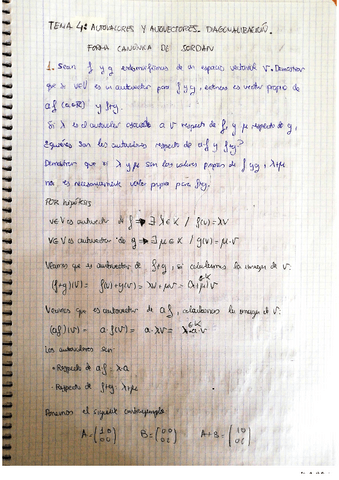 TEMA 4: AUTOVALORES Y AUTOVECTORES. DIAGONALIZACIÓN.
FORMA CANÓNICA DE JORDAN
1. Sean f y g endomorfismos de un espacio vectorial V. Demostrar
que si v∈V es un autovector para f y g, entonces es vector propio de
af (a∈R) y f+g.
Si λ es el autovalor asociado a v respecto de f, y μ respecto de g,
¿quiénes son los autovalores respecto de af y f+g?
Demostrar que si λ y μ son los valores propios de f y g, λ+μ
no es necesariamente valor propio para f+g.
POR HIPÓTESIS
v∈V es autovector de f → ∃ λ∈K / f(v)=λv
v∈V es autovector de g → ∃ μ∈K / g(v)=μ·v
Veamos que es autovector de f+g, si calculamos la imagen de v:
(f+g)(v) = f(v)+g(v) = λv + μv = (λ+μ)v
Veamos que es autovector de af, calculamos la imagen de v:
(af)(v) = a·f(v) = a·λv = λ·a·v
Los autovalores son:
- Respecto de af = λ·a
- Respecto de f+g: λ+μ
Ponemos el siguiente contraejemplo:
A = (1 0 B = (0 0 A+B = (1 0